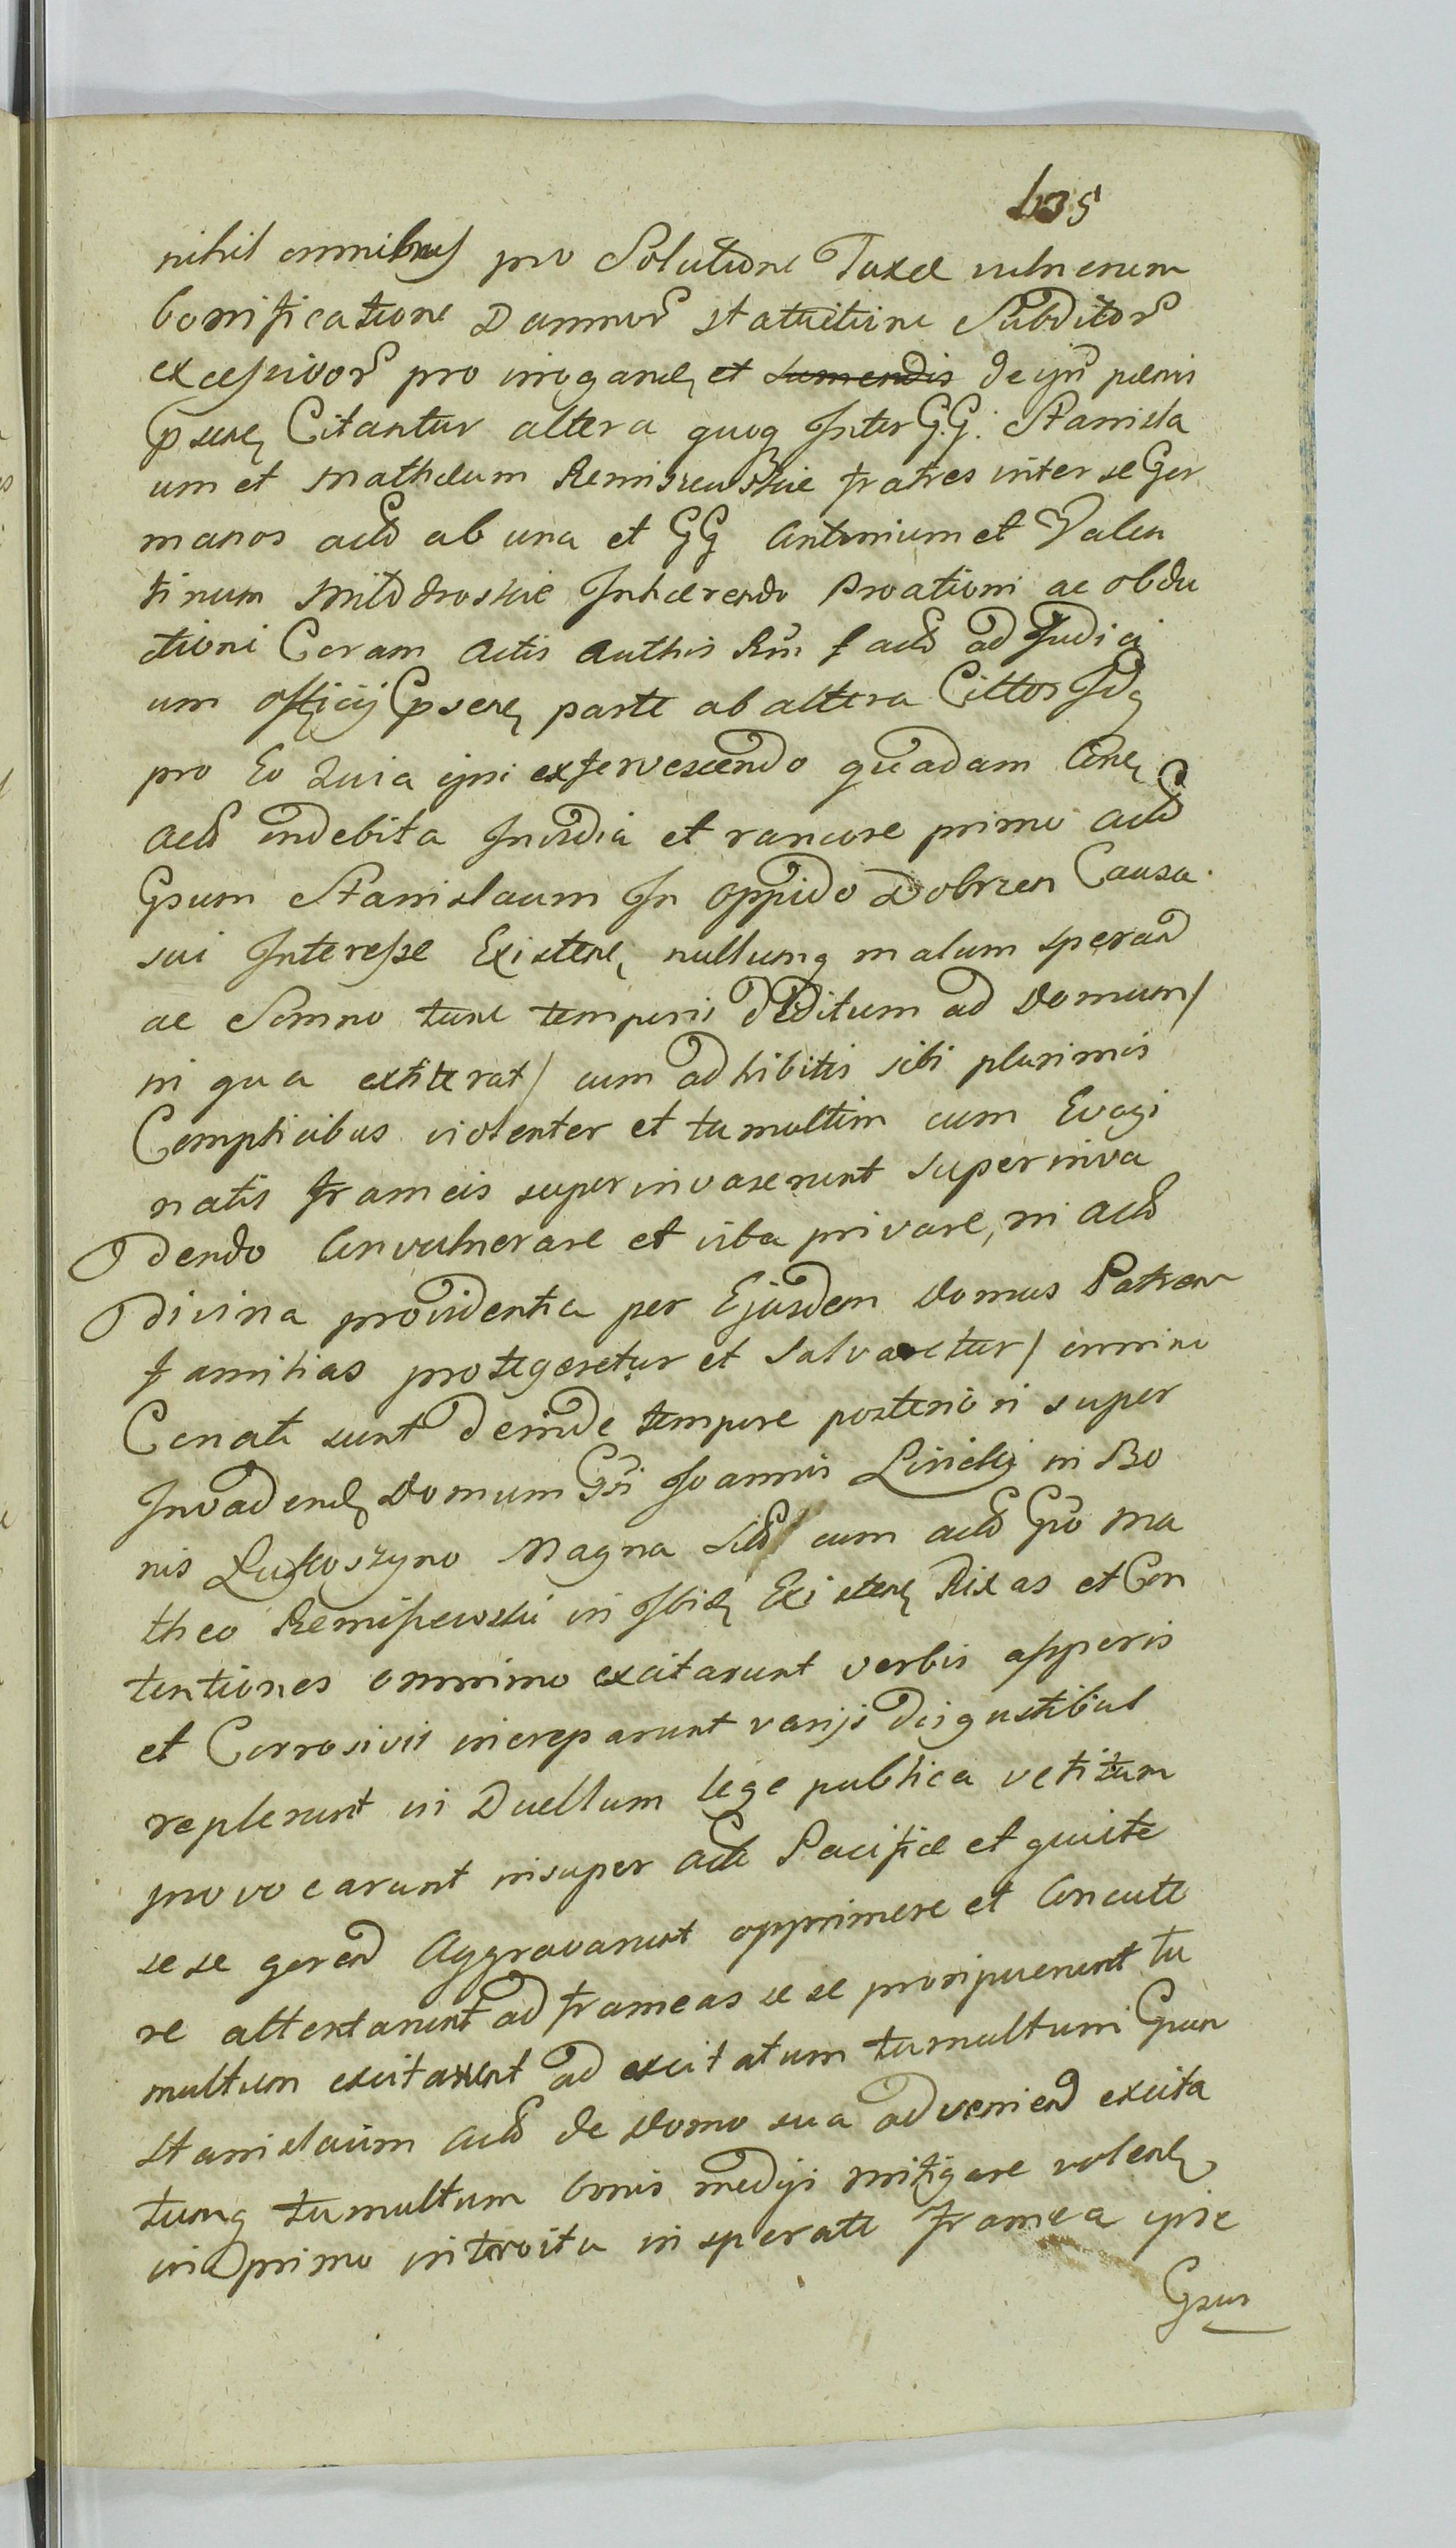 635
nihil omnibus pro Solutione Taxae vulnerum
bonificatione Damnor statuitione Subditor
excessivor pro irrogand et sumendis de ijs paenis
psen Citantur altera quoq Inter G.G. Stanisla
um et Mathaeum Remiszewskie fratres inter se Ger
manos actō ab una et GG Antonium et Valen
tinum Milodroskie Inhaerendo Proationi ac obdu
ctioni Coram Actis Authis Rni f actō ad Judici
um officij psen parte ab altera Cittos Idq
pro Eo Quia ipsi exfervescendo quadam
Actō indebita Invidia et rancore primo actō
Gsum Stanislaum In oppido Dobrzen Causa
sui Interesse Existen, nullumq malum sperand
ac Somno tunc temporis deditum ad Domum/
in qua extiterat/ cum adhibitis sibi plurimis
Complicibus violenter et tumultim cum Evagi
natis frameis superinvaserunt superinva
dendo Convulnerare et vita privare, ni actō
divina providentia per Ejusdem Domus Patrem
familias protegeretur et Salvaretur/ omnino
Conati sunt deinde tempore posteriori super
Invadend Domum Gsi Joannis Lisicki in Bo
nis Lukoszyno Magna sitō cum actō Gso Ma
theo Remiszewski in Ibid Existen Rixas et Con
tentiones omnimo excitarunt verbis asperis
et Corrosivis increparunt varijs disgustibus
replerunt in Duellum lege publica vetitum
provocarunt insuper actō Pacifice et quiete
sese gerend Aggravarunt opprimere et Concute
re attentarunt ad frameas sese proripuerunt tu
multum excitarunt ad excitatum tumultum Gsum
Stanislaum actō de Domo sua adveniend excita
tumq tumultum bonis medijs mitigare volend
in primo introitu insperate framea ipse
Gsus